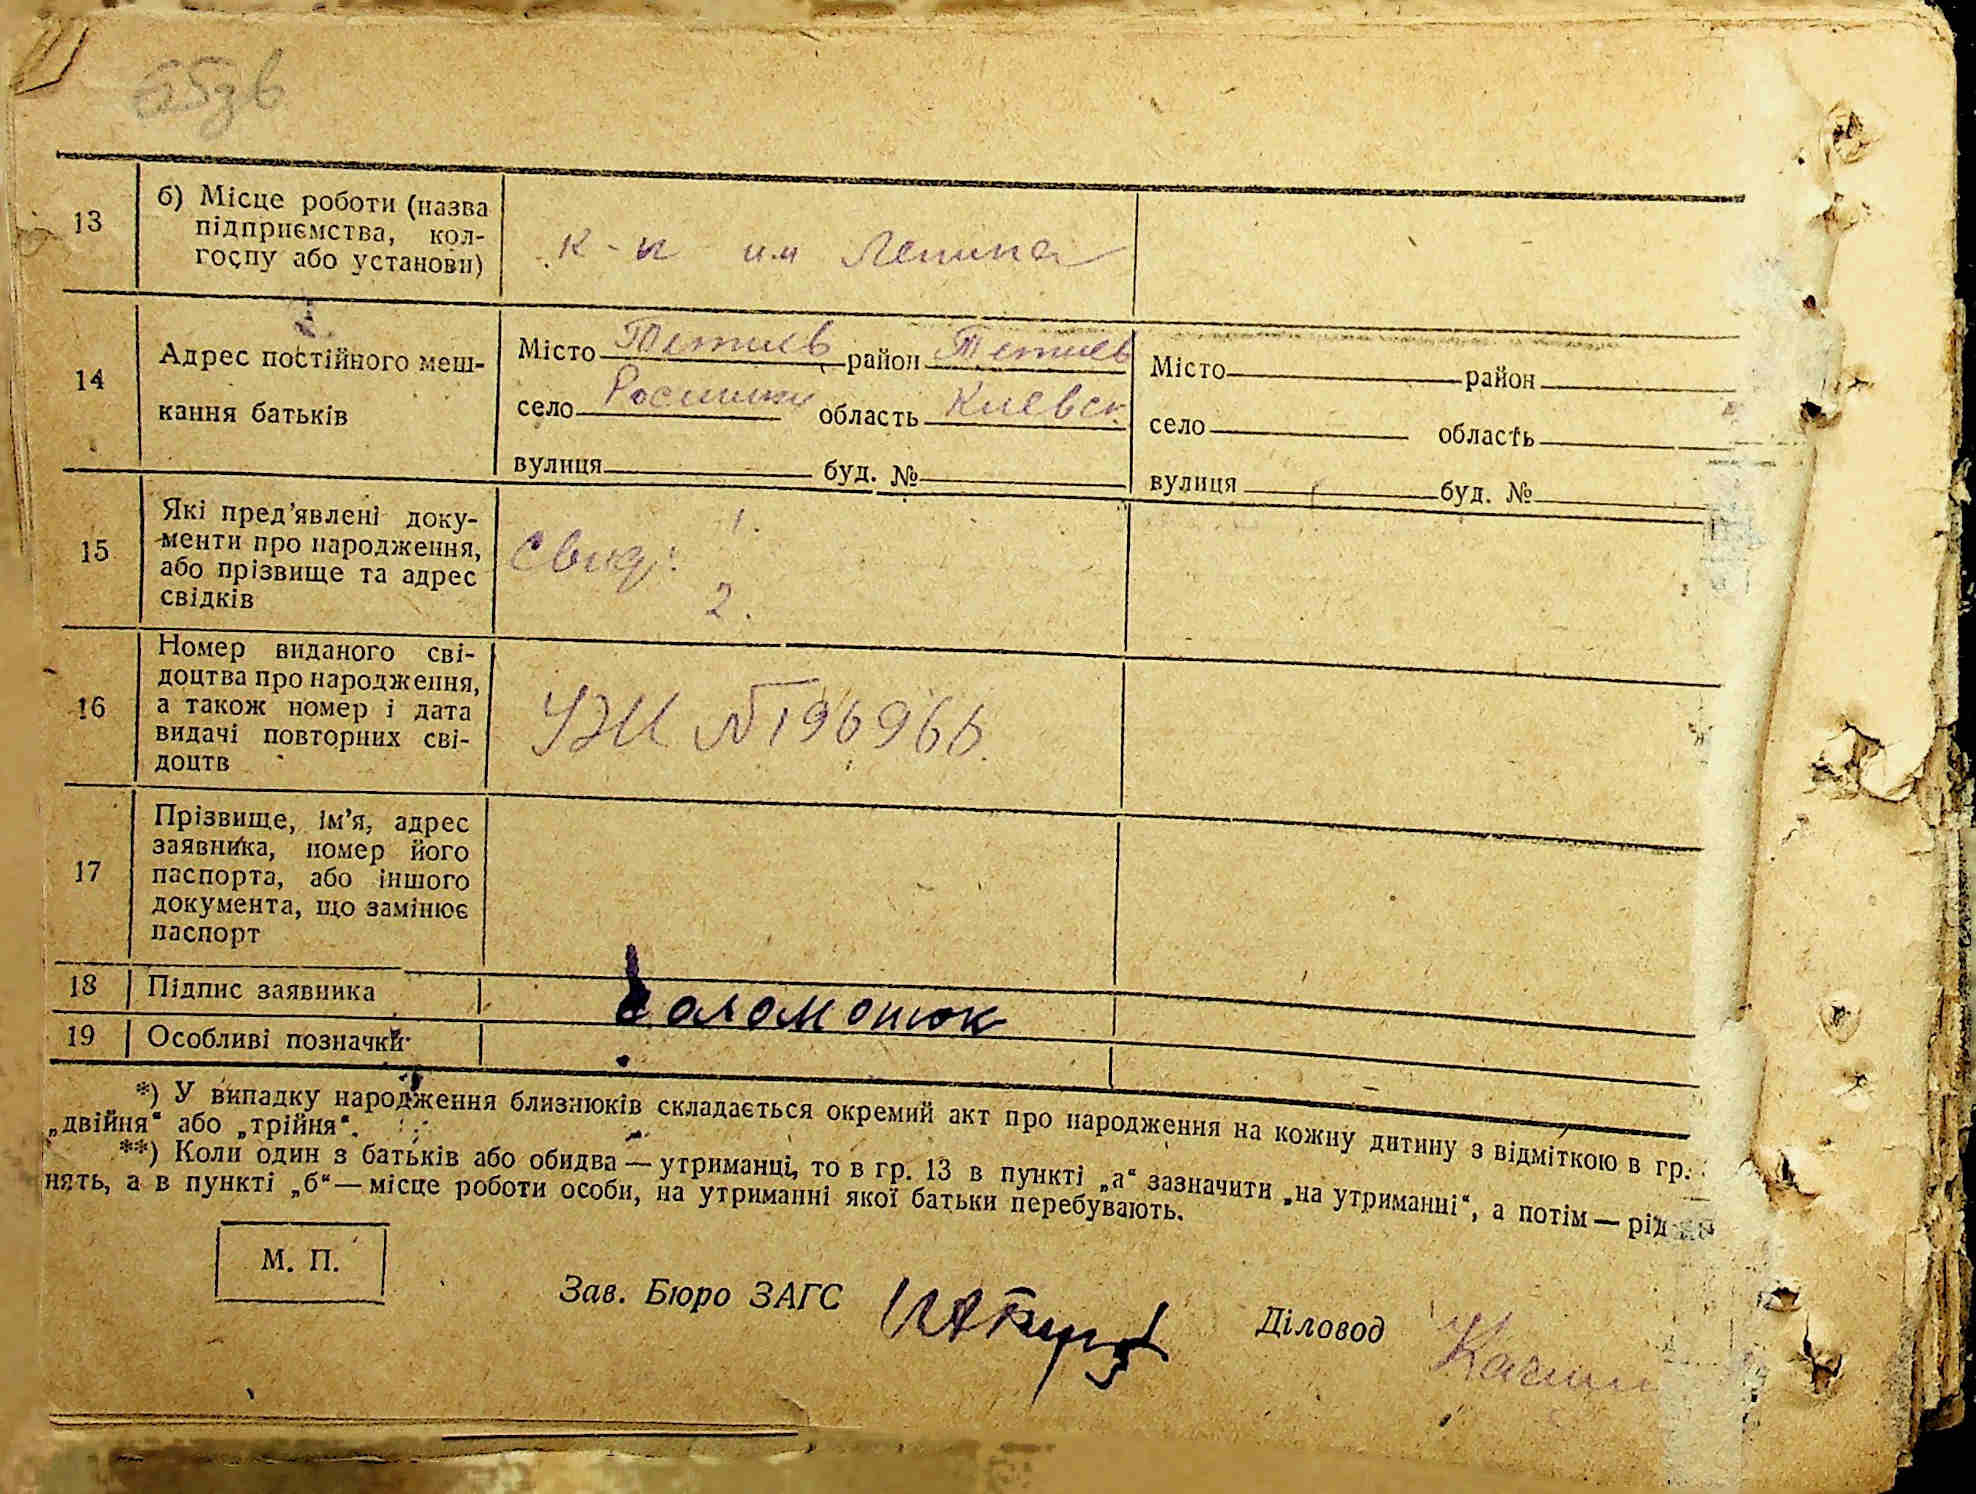 65зв
13
б) Місце роботи (назва
підприємства, кол-
госпу або установи)
к-п им Ленина
14
Адрес постійного меш-
кання батьків
Місто Тетиев район Тетиев
село Росишки область Киевск
вулиця буд. №
Місто район
село область
вулиця буд. №
15
Які пред'явлені доку-
менти про народження,
або прізвище та адрес
свідків
1.
Свид:
2.
16
Номер виданого сві-
доцтва про народження,
а також номер і дата
видачі повторних сві-
доцтв
№ 196966
17
Прізвище, ім'я, адрес
заявника, номер його
паспорта, або іншого
документа, що замінює
паспорт
18
Підпис заявника
19
Особливі позначки
*) У випадку народження близнюків складається окремий акт про народження на кожну дитину з відміткою в гр.
„двійня“ або „трійня“.
**) Коли один з батьків або обидва — утриманці, то в гр. 13 в пункті „а“ зазначити „на утриманні“, а потім — рід
нять, а в пункті „б“ — місце роботи особи, на утриманні якої батьки перебувають.
М. П.
Зав. Бюро ЗАГС
Діловод